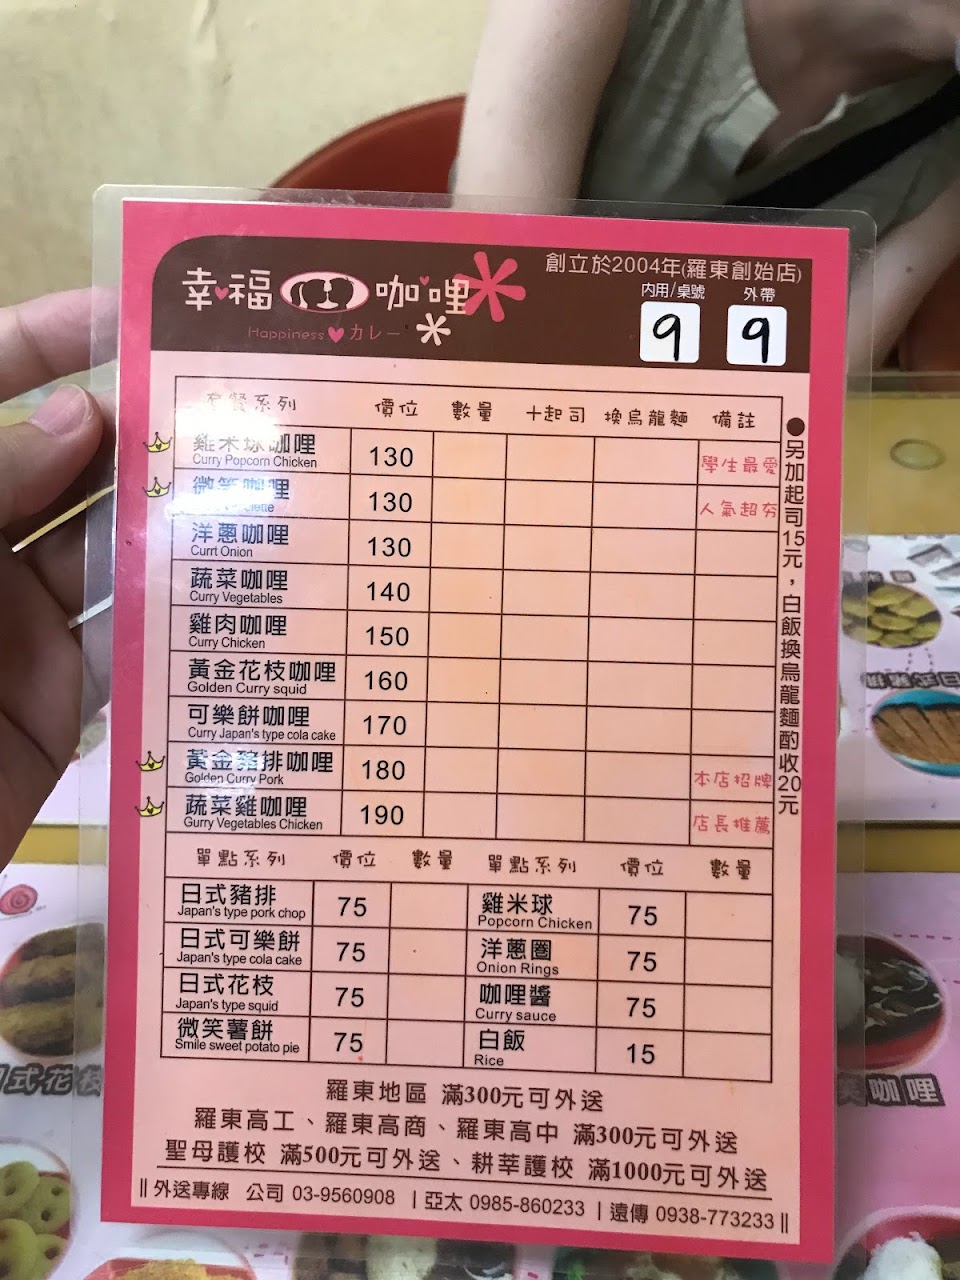 創立於2004年(羅東創始店)
幸福 咖哩
Happiness カレー
內用/桌號 外帶
9 9
套餐系列 價位 數量 十起司 換烏龍麵 備註
雞米球咖哩 130 學生最愛
Curry Popcorn Chicken
微笑咖哩 130 人氣超夯
洋蔥咖哩 130
Currt Onion
蔬菜咖哩 140
Curry Vegetables
雞肉咖哩 150
Curry Chicken
黃金花枝咖哩 160
Golden Curry squid
可樂餅咖哩 170
Curry Japan's type cola cake
黃金豬排咖哩 180 本店招牌
Golden Curry Pork
蔬菜雞咖哩 190 店長推薦
Gurry Vegetables Chicken
●另加起司15元，白飯換烏龍麵酌收20元
單點系列 價位 數量 單點系列 價位 數量
日式豬排 75 雞米球 75
Japan's type pork chop Popcorn Chicken
日式可樂餅 75 洋蔥圈 75
Japan's type cola cake Onion Rings
日式花枝 75 咖哩醬 75
Japan's type squid Curry sauce
微笑薯餅 75 白飯 15
Smile sweet potato pie Rice
羅東地區 滿300元可外送
羅東高工、羅東高商、羅東高中 滿300元可外送
聖母護校 滿500元可外送、耕莘護校 滿1000元可外送
‖外送專線 公司 03-9560908 | 亞太 0985-860233 | 遠傳 0938-773233‖
式花枝
咖哩